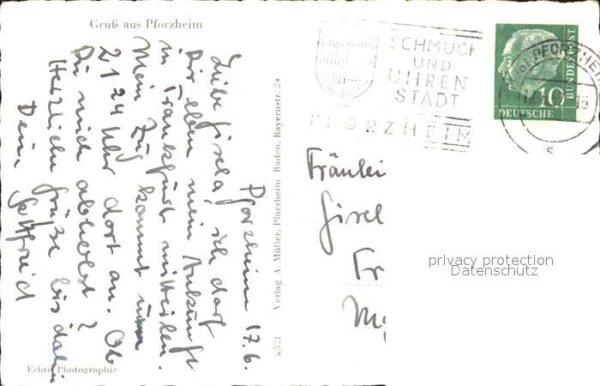 Gruß aus Pforzheim
Pforzheim 17.6.
Liebe Gisela, ich darf
Dir eben mein Ankunft
in Frankfurt mitteilen.
Mein Zug kommt um
2124 Uhr dort an. Ob
Du mich abholst?
Herzliche Grüße bis dahin
Dein Gottfried
Echte Photographie
Verlag A. Müller, Pforzheim Baden, Bayernstr. 24
SCHMUCK
UND
UHREN
STADT
PFORZHEIM
PFORZHEIM
10
DEUTSCHE
BUNDESPOST
Fräulei
Gisel
Fr
privacy protection
Datenschutz